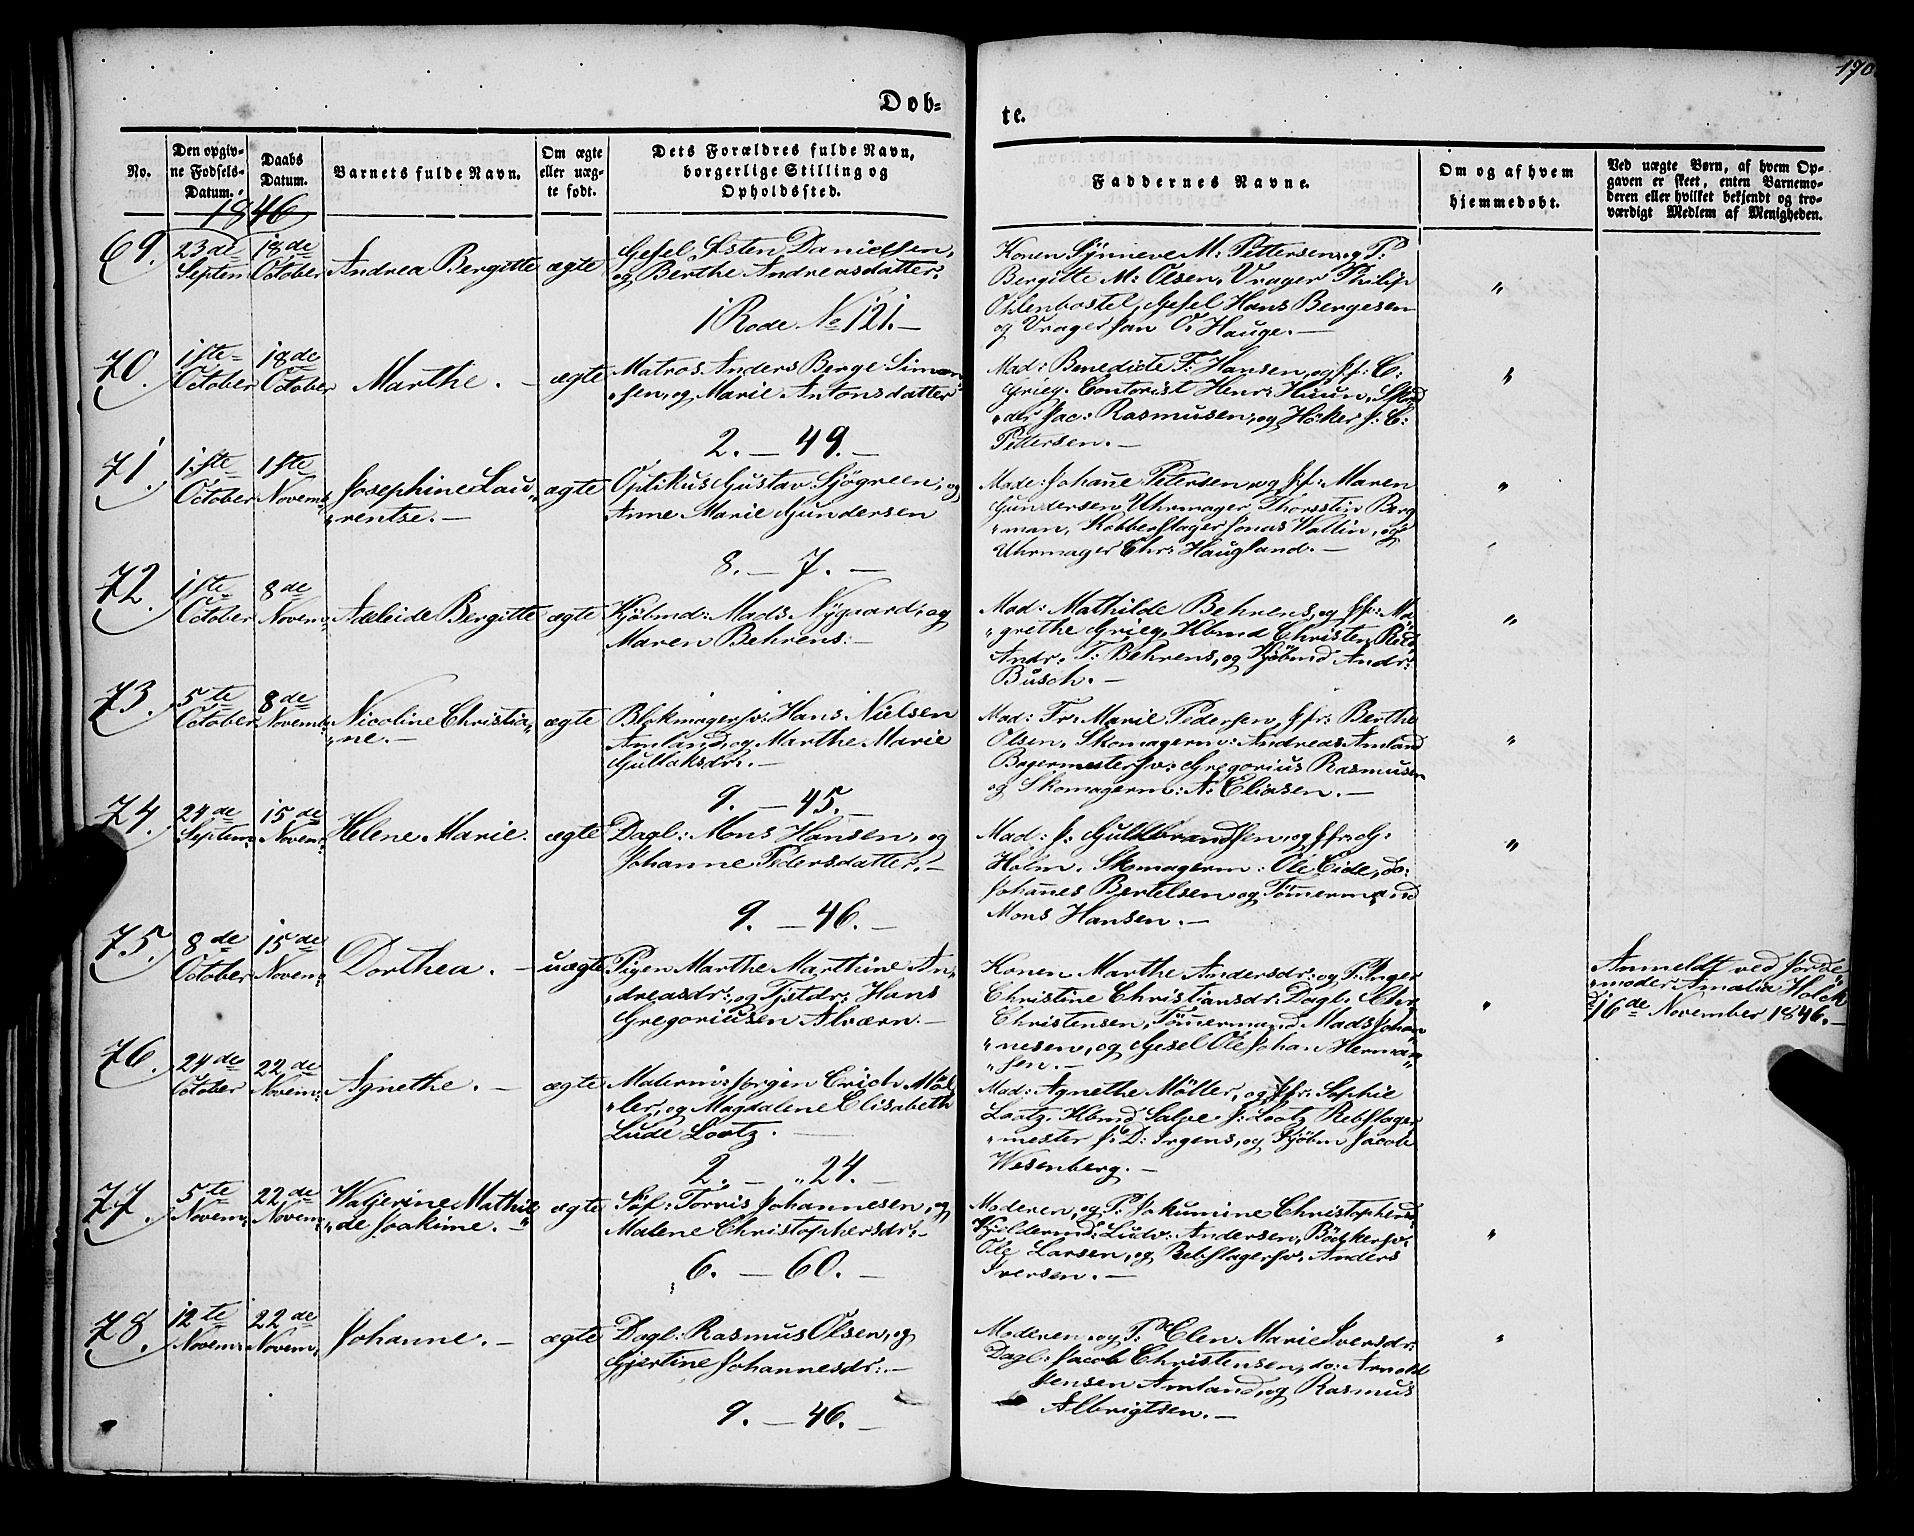 170
Døb-
te.
No.
Den opgiv-
ne Fødsels-
Datum.
Daabs
Datum.
Barnets fulde Navn.
Om ægte
eller uæg-
te født.
Dets Forældres fulde Navn,
borgerlige Stilling og
Opholdssted.
Faddernes Navne.
Om og af hvem
hjemmedøbt.
Ved uægte Børn, af hvem Op-
gaven er skeet, enten Barnemo-
deren eller hvilket bekjendt og tro-
værdigt Medlem af Menigheden.
1846
69.
23de
Septem
18de
October
Andrea Bergitte
ægte
Gesel Østen Danielsen,
og Berthe Andreasdatter.
1 Rode No 121.—
Konen Synneve M: Pettersen, og P:
Bergitte M: Olsen, Vrager Philip
Ohlenbostel, Gesel Hans Bergesen
og Vrager Jan O. Hauge.—
"
70.
1ste
October
18de
October
Marthe.—
ægte
Matros Anders Berge Simon-
"sen, og Marie Antonsdatter
2.—49.—
Mad: Benedicte F: Hansen, og Jfr: C:
Grieg. Contorist Henr: Huun,
Jac: Rasmusen, og Høker J: C:
Pettersen.—
"
71.
1ste
October
1ste
Novemb
Josephine Lau-
"rentse.—
ægte
Optikus Gustav Sjøgreen, og
Anne Marie Gundersen
8.—7.—
Mad: Johanne Petersen, og Jfr: Maren
Gundersen, Uhrmager Thorsstin Berg
"man, Kobberslager Jonas Wallin, og
Uhrmager Chr: Haugland.—
"
72.
1ste
October
8de
Novem:
Adeleide Bergitte
ægte
Kjøbmd: Mads Nygaard, og
Maren Behrens.—
Mad: Mathilde Behrens, og Jfr: Ma-
"grethe Grieg, Kbmd Christen
Andr. T: Behrens, og Kjøbmd Andr:
Busch.—
"
73.
5te
October
8de
Novemb:
Nicoline Christia-
"ne.—
ægte
Blokmagersv: Hans Nielsen
Amland, og Marthe Marie
Gullaksdr.—
9.—45.—
Mad: Fr: Marie Pedersen, Jfr: Berthe
Olsen, Skomagerm: Andreas Amland
Bøgermestersv: Gregorius Rasmusen
og Skomagerm: A: Eliasen.—
"
74.
24de
Septem:
15de
Novem:
Helene Marie.
ægte
Dagl: Mons Hansen, og
Johanne Pedersdatter.—
9.—46.—
Mad: J: Gulbrandsen, og Jfr: G:
Holm. Skomagerm: Ole Eide, do:
Johannes Bertelsen, og Tømmermand
Mons Hansen.—
"
75.
8de
October
15de
Novem:
Dorthea.—
uægte
Pigen Marthe Marthine An-
"dreasdr: og Tjstdr: Hans
Gregoriusen Alværn.—
Konen Marthe Andersdr: og P: Inger
Christine Christiansdr: Dagl:
Christensen, Tømmermand Mads Johan-
"nesen, og Gesel Ole Johan Herman-
"sen.—
"
Anmeldt ved Jorde-
"moder Amalia Holck
d 16de November 1846.—
76.
24de
October
22de
Novem:
Agnethe.—
ægte
Malerm: Jørgen Erich Møl-
"ler, og Magdalene Elisabeth
Lude Lootz.—
2.—"24.—
Mad: Agnethe Møller, og Jfr: Sophie
Lootz. Kbmd Salpe J: Lootz, Rebslager
"mester J: D: Irgens, og Kjøbm Jacob
Wesenberg.—
77.
5te
Novem:
22de
Novem:
Waljerine Mathil-
"de Joakime.—
ægte
Søf: Torvis Johannesen, og
Malene Christophersdr.—
6.—60.—
Moderen, og P: Jakumine Christophersd:
Kjeldermd: Ludv: Andersen, Bødkersv:
Ole Larsen, og Rebslagersv: Anders
Iversen.—
"
78.
12te
Novem:
22de
Novem.
Johanne.—
ægte
Dagl: Rasmus Olsen, og
Gjertine Johannesdr:—
9.—46.—
Moderen, og P: Elen Marie Iversdr:
Dagl: Jacob Christensen, do: Arnold
Jensen Amland, og Rasmus
Albrigtsen.—
"